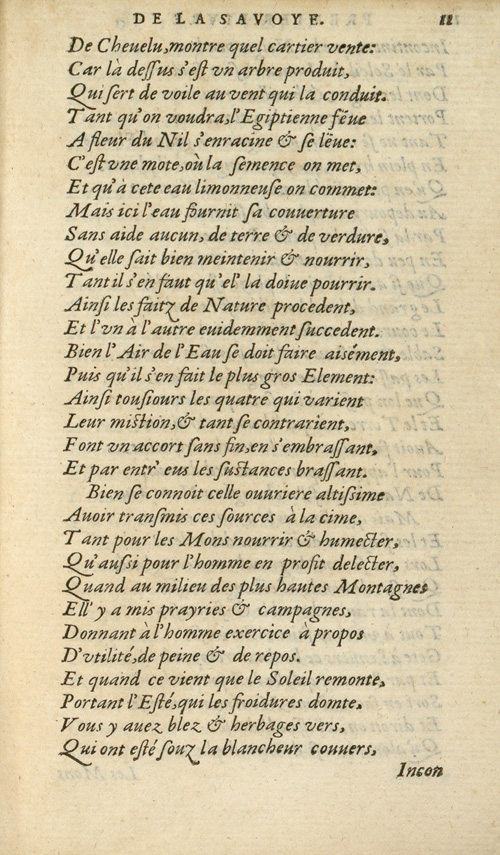 DE LA SAVOYE. 11
De Cheuelu, montre quel cartier vente:
Car là deſſus s'eſt vn arbre produit,
Qui ſert de voile au vent qui la conduit.
Tant qu'on voudra, l'Egiptienne féue
A fleur du Nil s'enracine & ſe léue:
C'eſt vne mote, où la ſemence on met,
Et qu'à cete eau limonneuſe on commet:
Mais ici l'eau fournit ſa couuerture
Sans aide aucun, de terre & de verdure,
Qu'elle ſait bien meintenir & nourrir,
Tant il s'en faut qu'el' la doiue pourrir.
Ainſi les faitz de Nature procedent,
Et l'vn à l'autre euidemment ſuccedent.
Bien l'Air de l'Eau ſe doit faire aisément,
Puis qu'il s'en fait le plus gros Element:
Ainſi touſiours les quatre qui varient
Leur miſtion, & tant ſe contrarient,
Font vn accort ſans fin, en s'embraſſant,
Et par entr' eus les ſuſtances braſſant.
Bien ſe connoit celle ouuriere altiſsime
Auoir tranſmis ces ſources à la cime,
Tant pour les Mons nourrir & humecter,
Qu'auſsi pour l'homme en profit delecter,
Quand au milieu des plus hautes Montagnes
Ell' y a mis prayries & campagnes,
Donnant à l'homme exercice à propos
D'vtilité, de peine & de repos.
Et quand ce vient que le Soleil remonte,
Portant l'Eſté, qui les froidures domte,
Vous y auez blez & herbages vers,
Qui ont eſté ſouz la blancheur couuers,
Incon